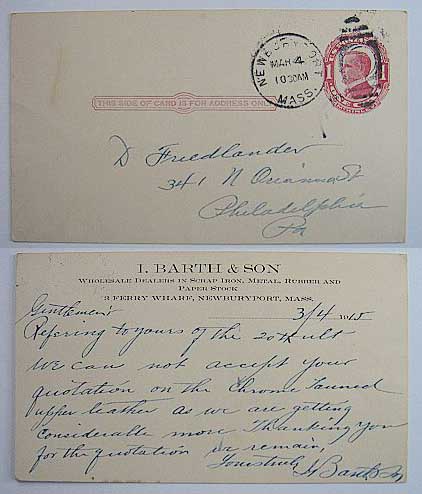 NEWBURYPORT
MAR 4
10 30 AM
MASS.
1
THIS SIDE OF CARD IS FOR ADDRESS ONLY
D Friedlander
341 N Orianna St
Philadelphia
Pa
I. BARTH & SON
WHOLESALE DEALERS IN SCRAP IRON, METAL, RUBBER AND
PAPER STOCK
3 FERRY WHARF, NEWBURYPORT, MASS.
3/4 1915
Gentlemen
Refering to yours of the 20th ult
we can not accept your
quotation on the Chrome Tanned
upper leather as we are getting
considerable more Thanking you
for the quotation we remain,
Yours truly
I Barth & Son